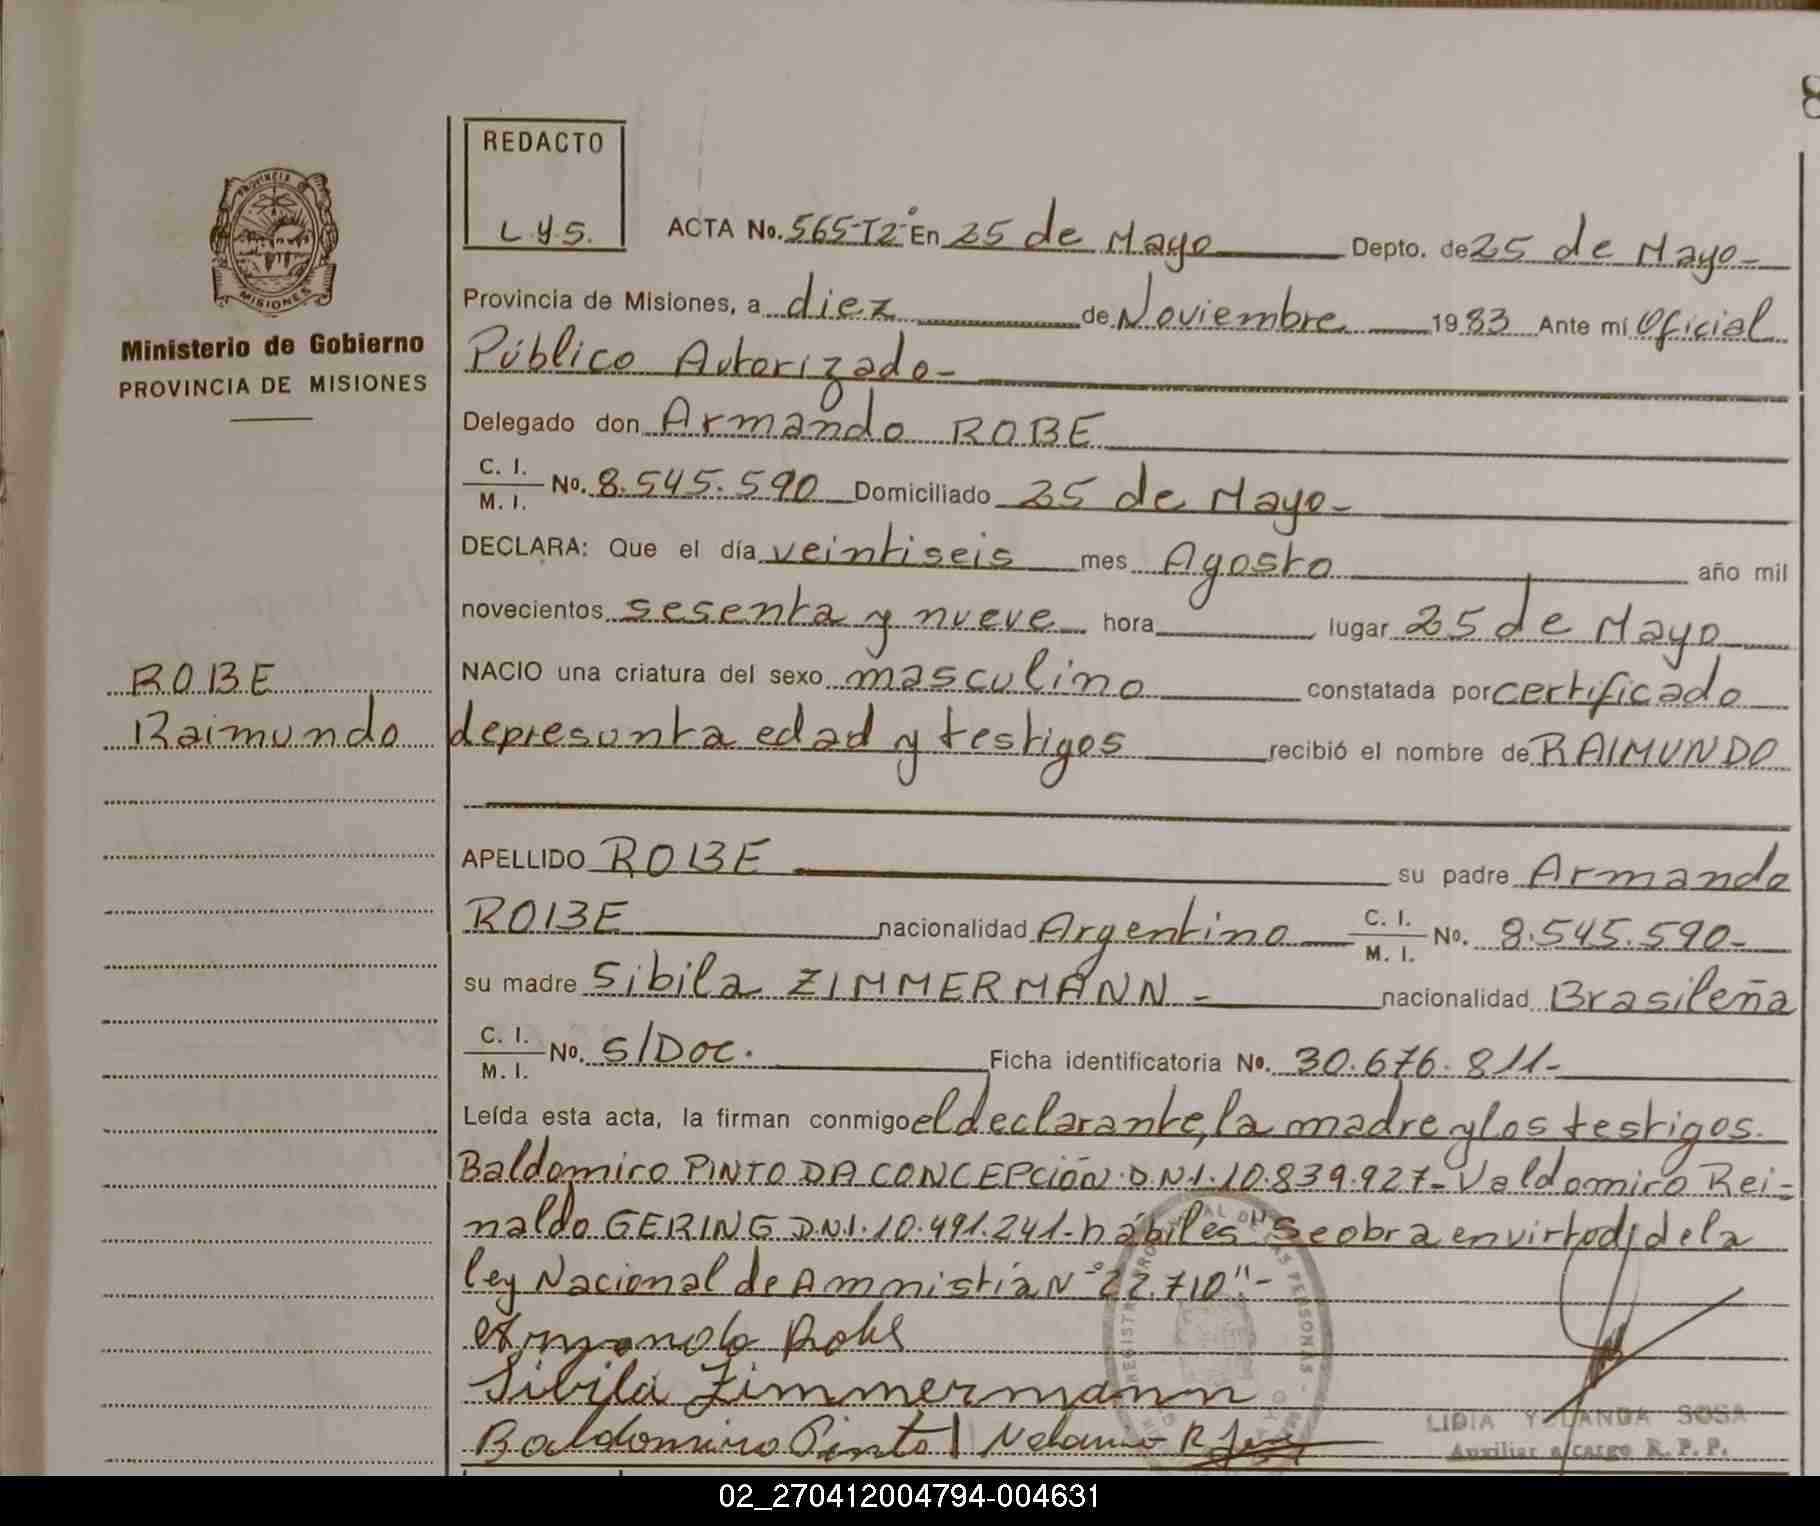 8
REDACTO
L.Y.S.
PROVINCIA DE
MISIONES
Ministerio de Gobierno
PROVINCIA DE MISIONES
ACTA No. 565-T2° En 25 de Mayo Depto. de 25 de Mayo-
Provincia de Misiones, a diez de Noviembre 1983 Ante mi Oficial
Público Autorizado-
Delegado don Armando ROBE
C. I.
M. I. No. 8.545.590 Domiciliado 25 de Mayo-
DECLARA: Que el día veintiseis mes Agosto año mil
novecientos sesenta y nueve hora lugar 25 de Mayo
ROBE
Raimundo
NACIO una criatura del sexo masculino constatada por certificado
depresunta edad y testigos recibió el nombre de RAIMUNDO
APELLIDO ROBE su padre Armando
ROBE nacionalidad Argentino C. I. M. I. No. 8.545.590-
su madre Sibila ZIMMERMANN - nacionalidad Brasileña
C. I.
M. I. No. S/Doc. Ficha identificatoria No. 30.676.811-
Leída esta acta, la firman conmigo el declarante, la madre y los testigos.
Baldomiro PINTO DA CONCEPCIÓN. D.N.I. 10.839.927- Valdomiro Rei-
naldo GERING D.N.I. 10.491.241- hábiles "Se obra en virtud de la
ley Nacional de Amnistía N° 22.710"-
Armando Robe
Sibila Zimmermann
Baldomiro Pinto
LIDIA YOLANDA SOSA
Auxiliar a/cargo R. P. P.
02_270412004794-004631